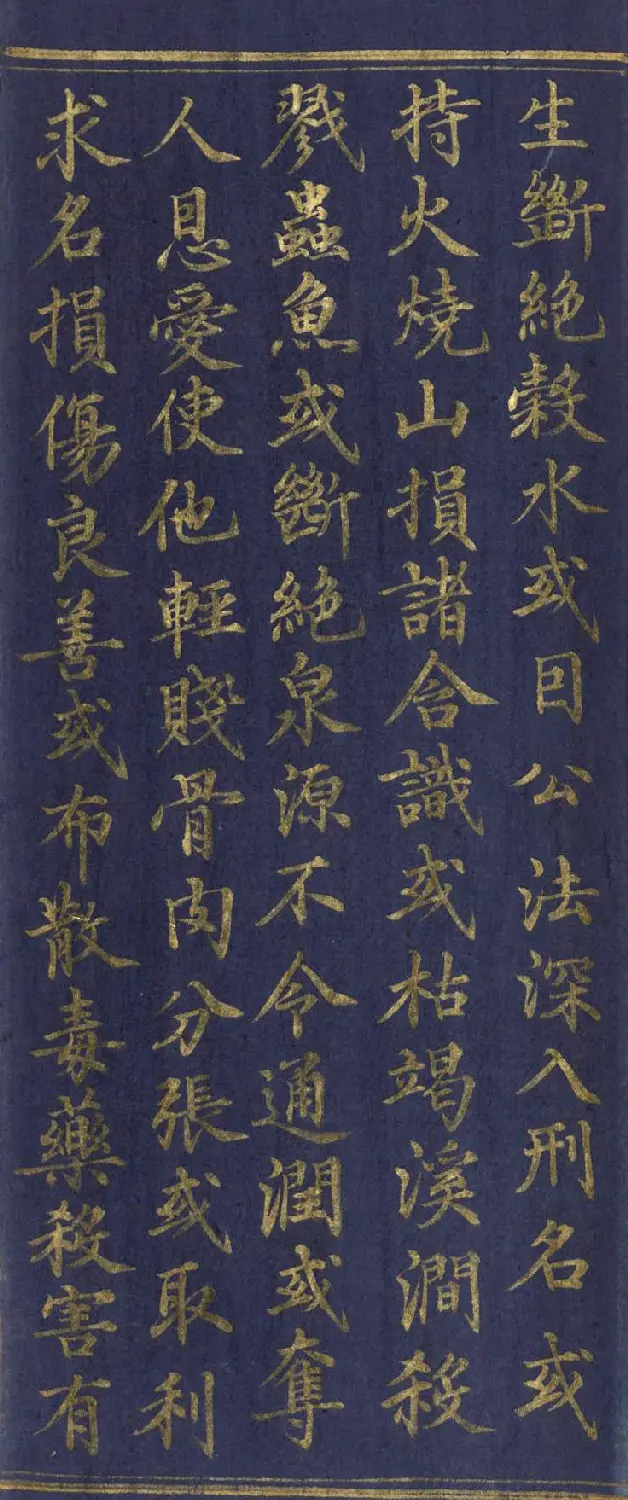 生斷絶穀水或因公法深入刑名或
持火燒山損諸含識或枯竭溪澗殺
戮蟲魚或斷絶泉源不令通潤或奪
人恩愛使他輕賤骨肉分張或取利
求名損傷良善或布散毒藥殺害有